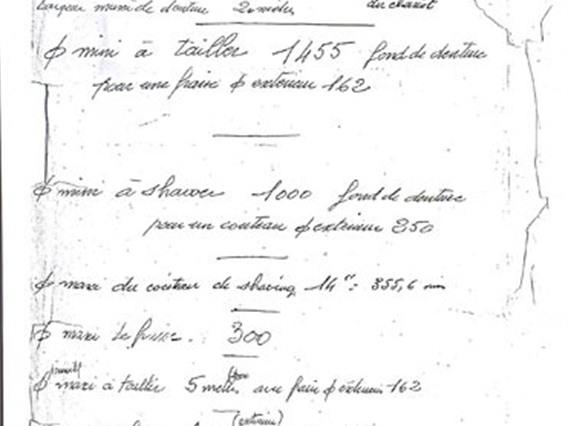 Largeur maxi de denture 2 mètres du chariot
ϕ mini à tailler 1455 fond de denture
pour une fraise ϕ extérieur 162
ϕ mini à shaver 1000 fond de denture
pour un couteau ϕ extérieur 250
ϕ maxi du couteau de shaving 14" = 355,6 mm
ϕ maxi de fraise. 300
ϕ maxi à tailler 5 mètres avec fraise ϕ extérieur 162
(extérieur)